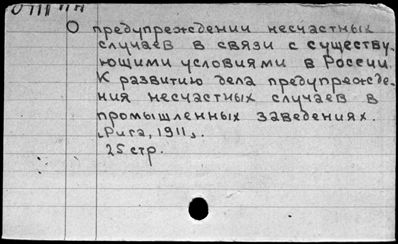 О предупреждении несчастных
случаев в связи с существу-
ющими условиями в России.
К развитию дела предупрежде-
ния несчастных случаев в
промышленных заведениях.
[Рига, 1911].
25 стр.